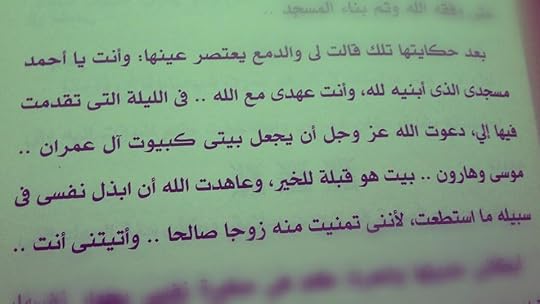 وفقه الله وتم بناء المسجد ..
بعد حكايتها تلك قالت لى والدمع يعتصر عينها: وأنت يا أحمد
مسجدى الذى أبنيه لله، وأنت عهدى مع الله .. فى الليلة التى تقدمت
فيها إلي، دعوت الله عز وجل أن يجعل بيتى كبيوت آل عمران ..
موسى وهارون .. بيت هو قبلة للخير، وعاهدت الله أن ابذل نفسى فى
سبيله ما استطعت، لأننى تمنيت منه زوجا صالحا .. وأتيتنى أنت ..